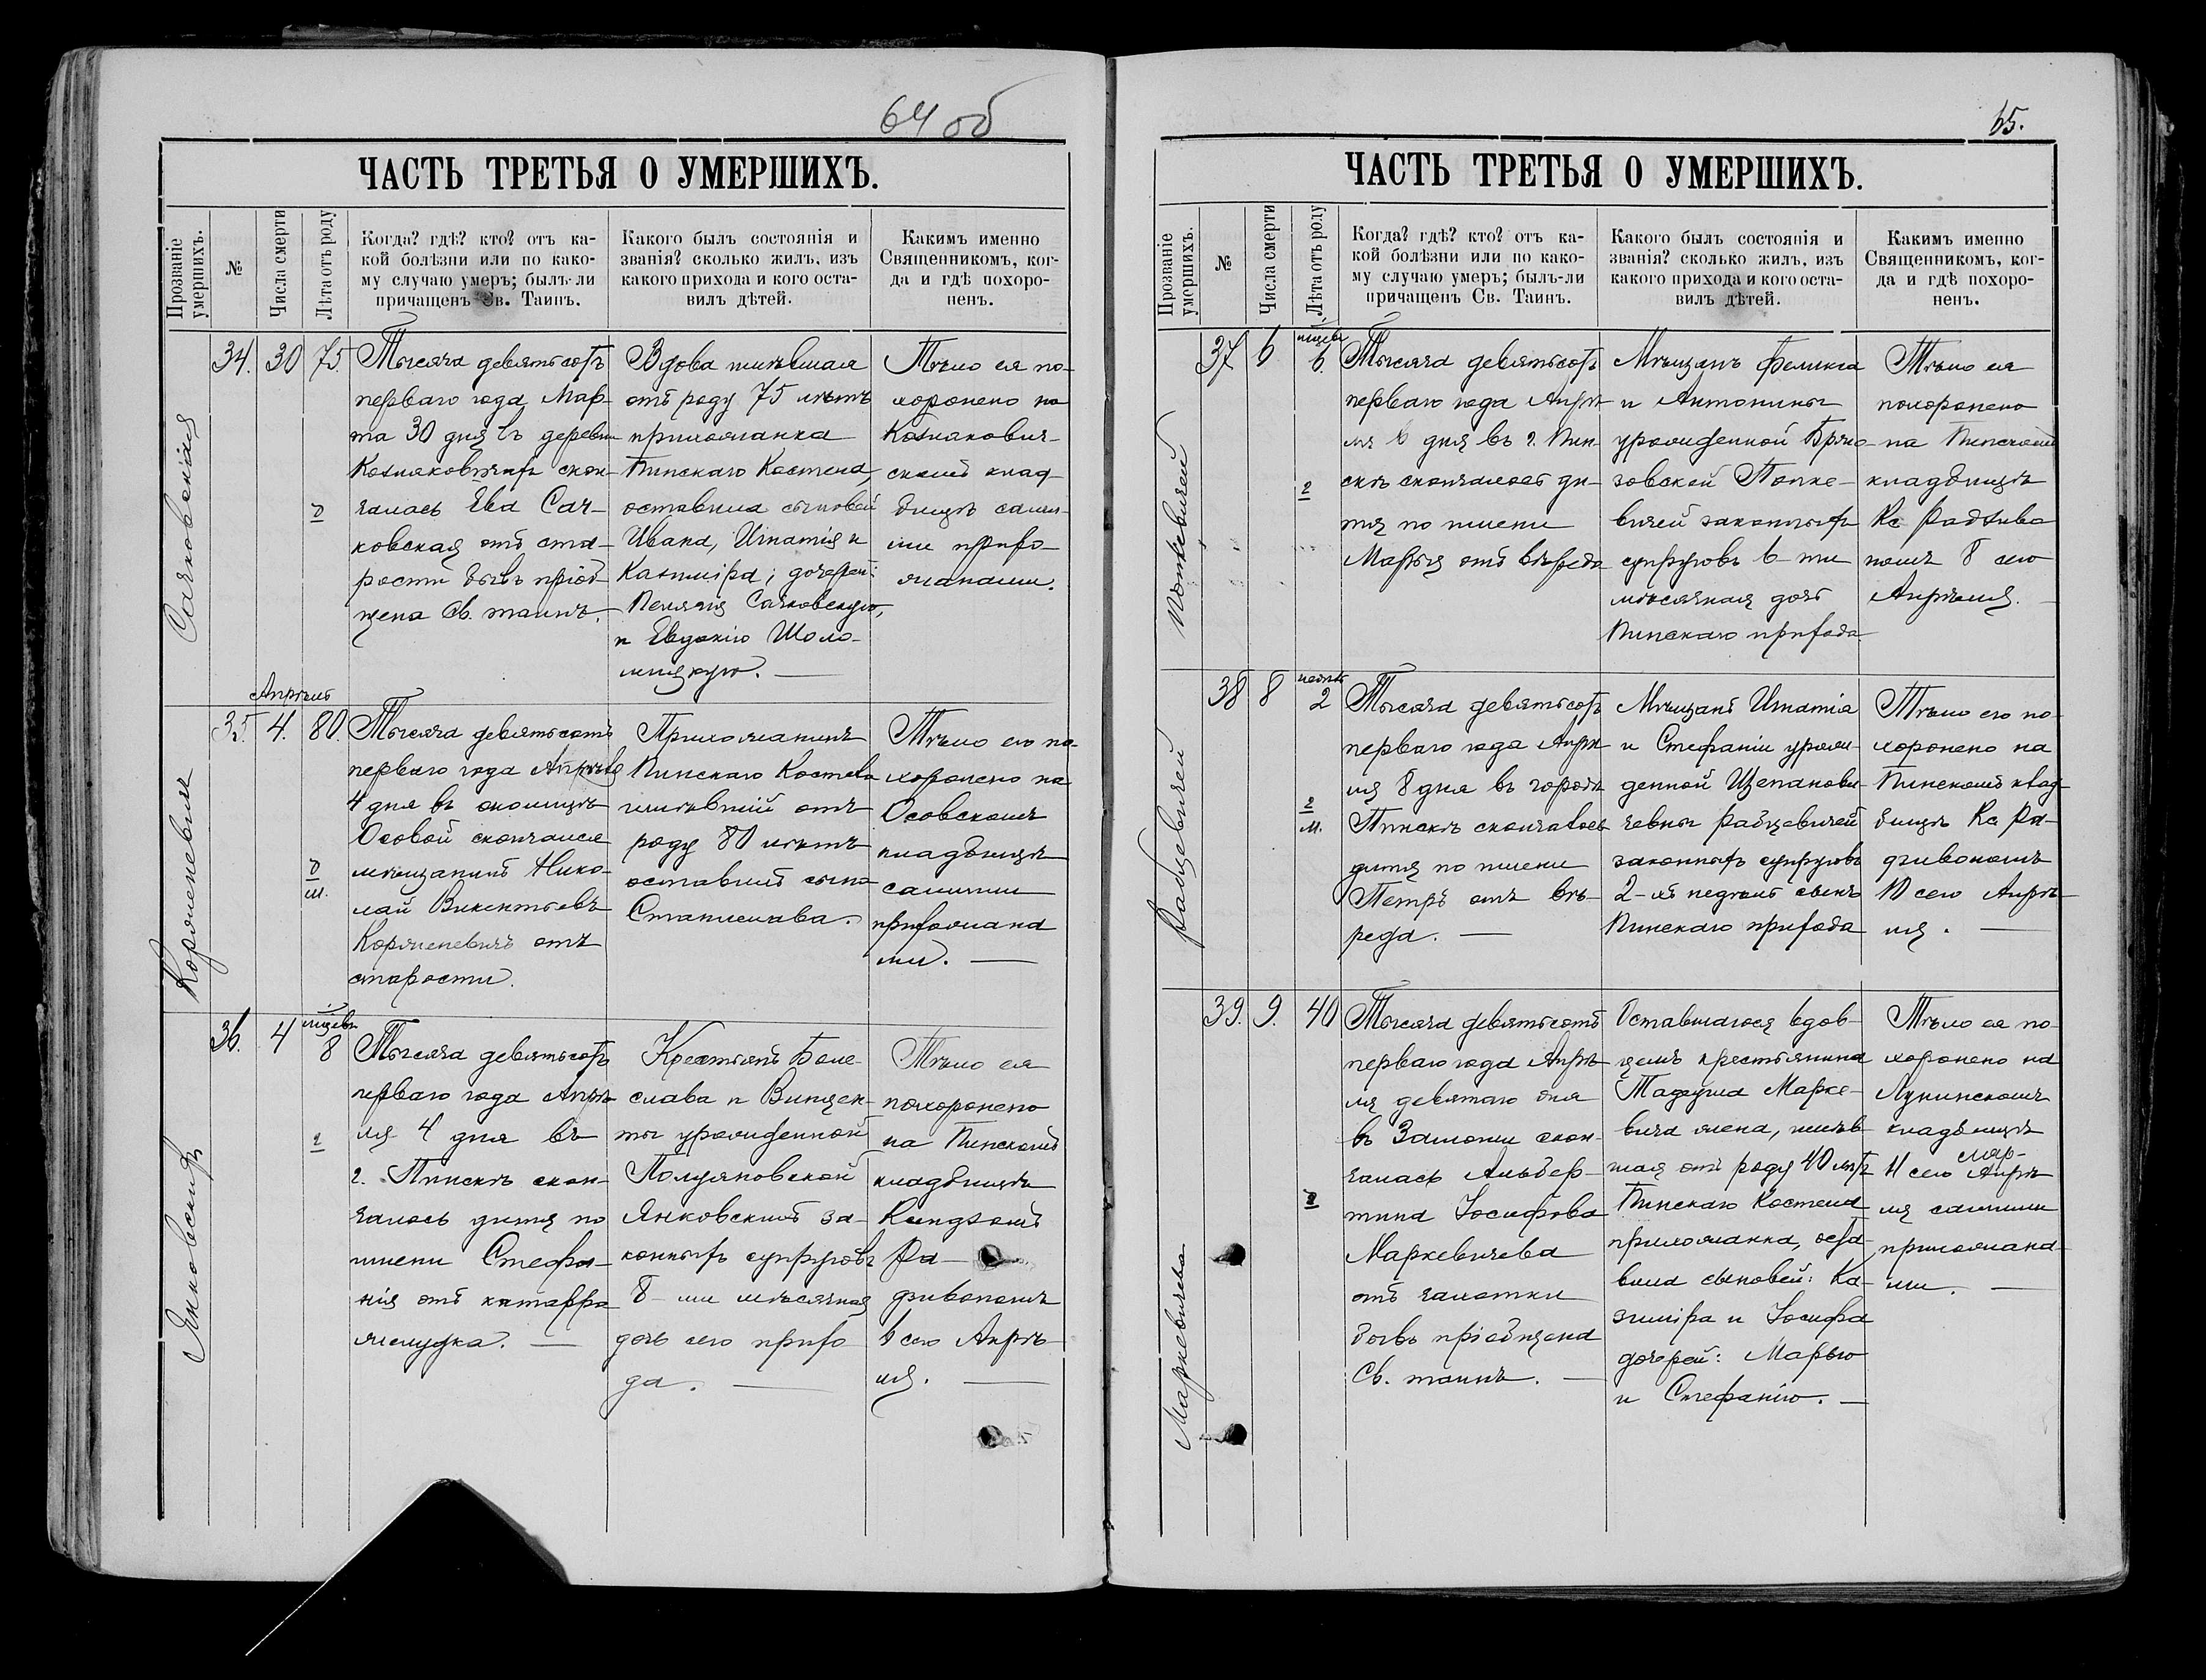 64 об
ЧАСТЬ ТРЕТЬЯ О УМЕРШИХЪ.
Прозваніе умершихъ.
№
Числа смерти
Лѣта отъ роду
Когда? гдѣ? кто? отъ ка-
кой болѣзни или по како-
му случаю умеръ; былъ-ли
причащенъ Св. Таинъ.
Какого былъ состоянія и
званія? сколько жилъ, изъ
какого прихода и кого оста-
вилъ дѣтей.
Какимъ именно
Священникомъ, ког-
да и гдѣ похоро-
ненъ.
Сачковская
34. 30 75.
д
Тысяча девятьсотъ
перваго года Мар-
та 30 дня въ деревни
Козляковичахъ скон-
чалась Ева Сач-
ковская отъ ста-
рости бывъ пріоб-
щена Св. таинъ.
Вдова имѣвшая
отъ роду 75 лѣтъ
прихожанка
Пинскаго Костела,
оставила сыновей
Ивана, Игнатія и
Казиміра; дочерей:
Сачковскую,
и Евдокію Шоло-
мицкую.
Тѣло ея по-
хоронено на
Козлякович-
скомъ клад-
бищѣ сами-
ми прихо-
жанами.
Апрѣль
Корженевичъ
35. 4. 80.
д
м.
Тысяча девятьсотъ
перваго года Апрѣля
4 дня въ околицѣ
Осовой скончался
мѣщанинъ Нико-
лай Викентьевъ
Корженевичъ отъ
старости.
Прихожанинъ
Пинскаго Костела
имѣвшій отъ
роду 80 лѣтъ
оставилъ сына
Станислава.
Тѣло его по-
хоронено на
Осовскомъ
кладбищѣ
самими
прихожана
ми.
Янковскихъ
36. 4 мѣсяцевъ 8
г
Тысяча девятьсотъ
перваго года Апрѣ-
ля 4 дня въ
г. Пинскѣ скон-
чалось дитя по
имени Стефа-
нія отъ катарра
желудка.
Крестьянъ Боле-
слава и Винцен-
ты урожденной
Полуяновской
Янковскихъ за-
конныхъ супруговъ
8-ми мѣсячная
дочь сего прихо
да.
Тѣло ея
похоронено
на Пинскомъ
кладбищѣ
Ксендзомъ
Ра-
дзивономъ
6 сего Апрѣ-
ля.
65.
ЧАСТЬ ТРЕТЬЯ О УМЕРШИХЪ.
Прозваніе умершихъ.
№
Числа смерти
Лѣта отъ роду
Когда? гдѣ? кто? отъ ка-
кой болѣзни или по како-
му случаю умеръ; былъ-ли
причащенъ Св. Таинъ.
Какого былъ состоянія и
званія? сколько жилъ, изъ
какого прихода и кого оста-
вилъ дѣтей.
Какимъ именно
Священникомъ, ког-
да и гдѣ похоро-
ненъ.
37 6 мѣсяцевъ 6.
г
Тысяча девятьсотъ
перваго года Апрѣ-
ля 6 дня въ г. Пин-
скѣ скончалось ди-
тя по имени
Марья отъ вереда
Мѣщанъ Феликса
и Антонины
урожденной
законныхъ
супруговъ 6-ти
мѣсячная дочь
Пинскаго прихода
Тѣло ея
похоронено
на Пинскомъ
кладбищѣ
Кс Радзиво
номъ 8 сего
Апрѣля.
Рабцевичей
38 8 недѣль 2
г
м.
Тысяча девятьсотъ
перваго года Апрѣ-
ля 8 дня въ городѣ
Пинскѣ скончалось
дитя по имени
Петръ отъ ве-
реда.
Мѣщанъ Игнатія
и Стефаніи урож-
денной Щепанови-
чевны Рабцевичей
законныхъ супруговъ
2-хъ недѣль сынъ
Пинскаго прихода
Тѣло его по-
хоронено на
Пинскомъ клад-
бищѣ Кс Ра-
дзивономъ
10 сего Апрѣ-
ля.
Маркевичева
39. 9. 40
Тысяча девятьсотъ
перваго года Апрѣ-
ля девятаго дня
въ скон-
чалась Альбер-
тина Іосифова
Маркевичева
отъ чахотки
бывъ пріобщена
Св. таинъ.
Оставшагося вдов-
цемъ крестьянина
Тадеуша Марке-
вича жена, имѣв-
шая отъ роду 40 лѣтъ
Пинскаго Костела
прихожанка, оста-
вила сыновей: Ка-
зиміра и Іосифа
дочерей: Марью
и Стефанію.
Тѣло ея по-
хоронено на
Лунинскомъ
кладбищѣ
11 сего Апрѣ
ля самими
прихожана-
ми.